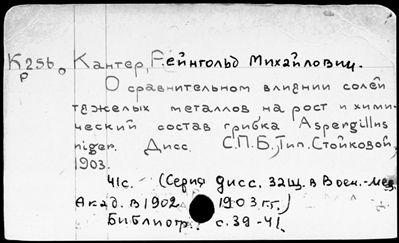 К256 Кантер, Рейнгольд Михайлович.
Р О сравнительном влиянии солей
тяжелых металлов на рост и хими-
ческий состав грибка Aspergillus
niger. Дисс. С.П.Б., Тип. Стойковой,
1903.
41с. (Серия дисс. защ. в Воен.-мед.
Акад. в 1902 1903 г.г.)
Библиогр. с. 39-41.